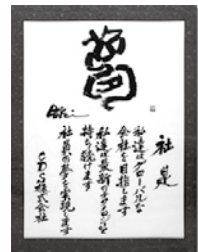 夢
社是
私達はグローバルな
会社を目指します
私達は最新の
持ち続けます
社員の夢を実現します
CDS株式会社